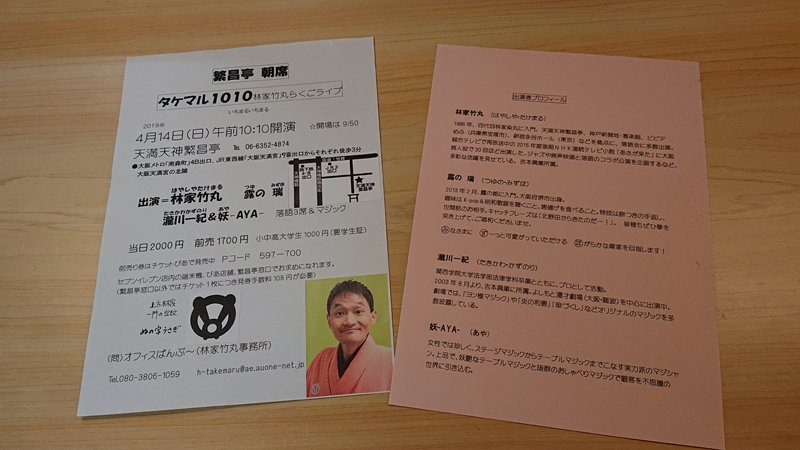 繁昌亭 朝席
タケマル1010 林家竹丸らくごライブ
いちまるいちまる
2019年
4月14日(日)午前10:10開演 ☆開場は9:50
天満天神繁昌亭 ℡ 06-6352-4874
●大阪メトロ「南森町」4B出口、JR東西線「大阪天満宮」7番出口からそれぞれ徒歩3分
大阪天満宮の北隣
はやしやたけまる つゆ みずほ
出演=林家竹丸 露の 瑞
たきかわかずのり あや
瀧川一紀&妖-AYA- 落語3席&マジック
天満天神繁昌亭
当日2000円 前売1700円 小中高大学生1000円(要学生証)
前売り券はチケットぴあで発売中 Pコード 597-700
セブンイレブン店内の端末機、ぴあ店舗、繁昌亭窓口でお求めになれます。
(繁昌亭窓口以外ではチケット1枚につき発券手数料108円が必要)
上方林家
一門の定紋
ぬの字うさぎ
(問)オフィスばんぶ~(林家竹丸事務所)
Tel.080-3806-1059 h-takemaru@ae.auone-net.jp
出演者プロフィール
林家竹丸 (はやしや・たけまる)
露の 瑞 (つゆの・みずほ)
2013年2月、露の都に入門。大阪府堺市出身。
趣味はK-popと昭和歌謡を聴くこと、唐揚げを食べること。特技は餅つきの手返し、
世間話のお相手。キャッチフレーズは「北野田からきたのだー!」。 皆様もぜひ拳を
突き上げて、ご唱和くださいませ。
みなさまに ずーっと可愛がっていただける ほがらかな噺家を目指します!
瀧川一紀 (たきかわ・かずのり)
関西学院大学法学部法律学科卒業とともに、プロとして活動。
2003年8月より、吉本興業に所属。よしもと漫才劇場(大阪・難波)を中心に出演中。
劇場では、「ヨン様マジック」や「炎の和妻」「傘づくし」などオリジナルのマジックを多
数披露している。
妖-AYA- (あや)
女性では珍しく、ステージマジックからテーブルマジックまでこなす実力派のマジシャ
ン。上品で、妖艶なテーブルマジックと抜群のおしゃべりマジックで観客を不思議の
世界に引き込む。